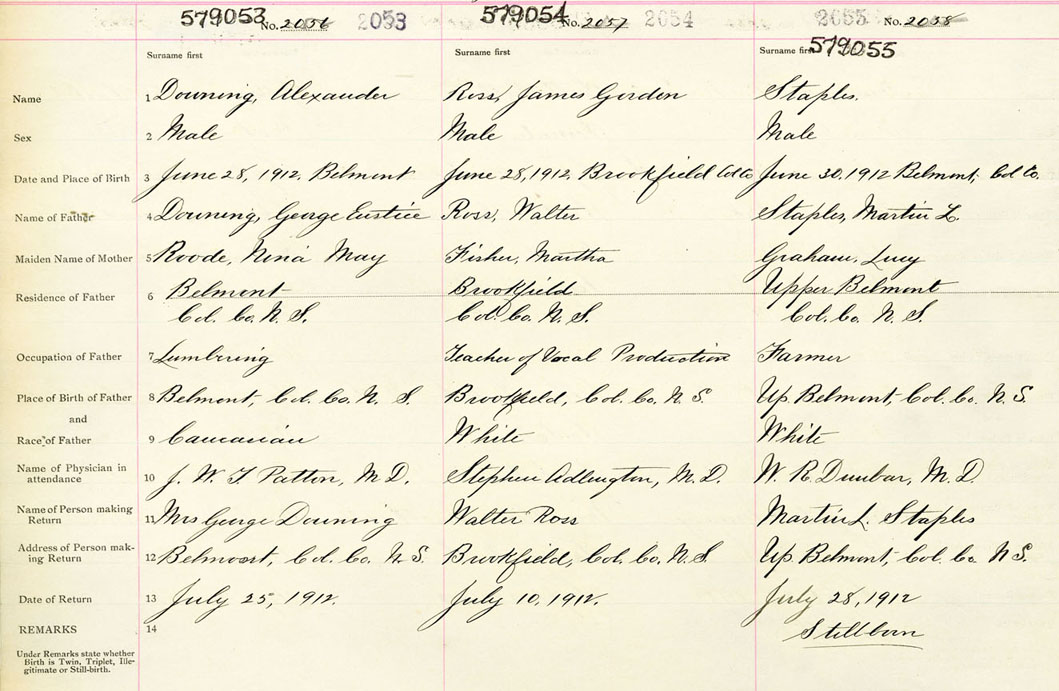 579053 No. 2056 2053 579054 No. 2057 2054 2055 No. 2058
Surname first Surname first Surname first 579055
Name 1 Downing, Alexander Ross, James Gordon Staples.
Sex 2 Male Male Male
Date and Place of Birth 3 June 28, 1912, Belmont June 28, 1912, Brookfield Col Co June 30, 1912 Belmont, Col Co.
Name of Father 4 Downing, George Eustice Ross, Walter Staples, Martin L.
Maiden Name of Mother 5 Roode, Nina May Fisher, Martha Graham, Lucy
Residence of Father 6 Belmont Brookfield Upper Belmont
Col. Co. N. S. Col. Co. N. S. Col. Co. N. S.
Occupation of Father 7 Lumbering Teacher of Vocal Production Farmer
Place of Birth of Father 8 Belmont, Col. Co. N. S. Brookfield, Col. Co. N. S. Up. Belmont, Col. Co. N. S.
and
Race of Father 9 Caucasian White White
Name of Physician in
attendance 10 J. W. T Patton, M. D. Stephen Adlington, M. D. W. R. Dunbar, M. D.
Name of Person making
Return 11 Mrs George Downing Walter Ross Martin L. Staples
Address of Person mak-
ing Return 12 Belmont, Col. Co. N. S. Brookfield, Col. Co. N. S. Up. Belmont, Col. Co N S.
Date of Return 13 July 25, 1912. July 10, 1912. July 28, 1912
REMARKS 14 Stillborn
Under Remarks state whether
Birth is Twin, Triplet, Ille-
gitimate or Still-birth.